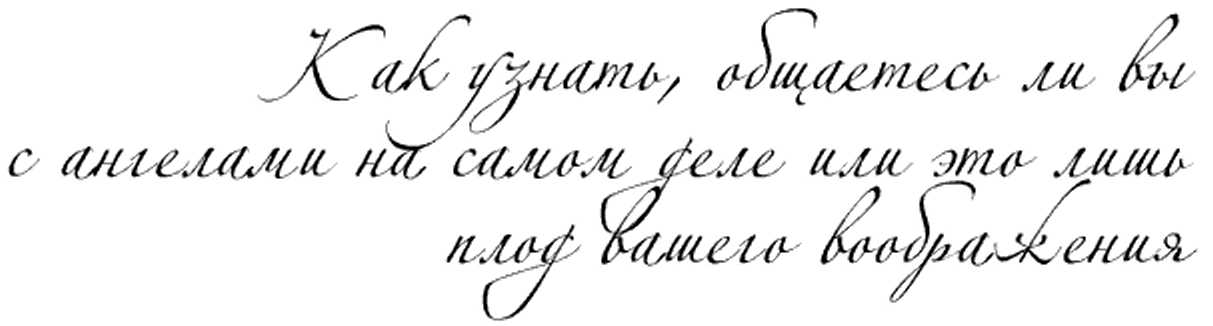 Как узнать, общаетесь ли вы
с ангелами на самом деле или это лишь
плод вашего воображения